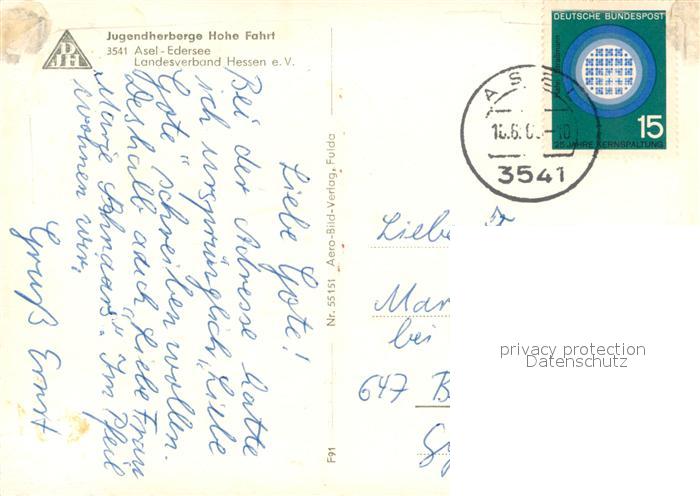 Jugendherberge Hohe Fahrt
3541 Asel - Edersee
Landesverband Hessen e. V.
Liebe Gote!
Bei der Adresse hatte
ich ursprünglich „Liebe
Gote" schreiben wollen.
Deshalb auch „Liebe Frau
Marie
wohnen wir.
Gruß Ernst
Nr. 55151 Aero-Bild-Verlag, Fulda
F91
DEUTSCHE BUNDESPOST
15
25 JAHRE KERNSPALTUNG
3541
Liebe
Mar
bei
647 B
privacy protection
Datenschutz